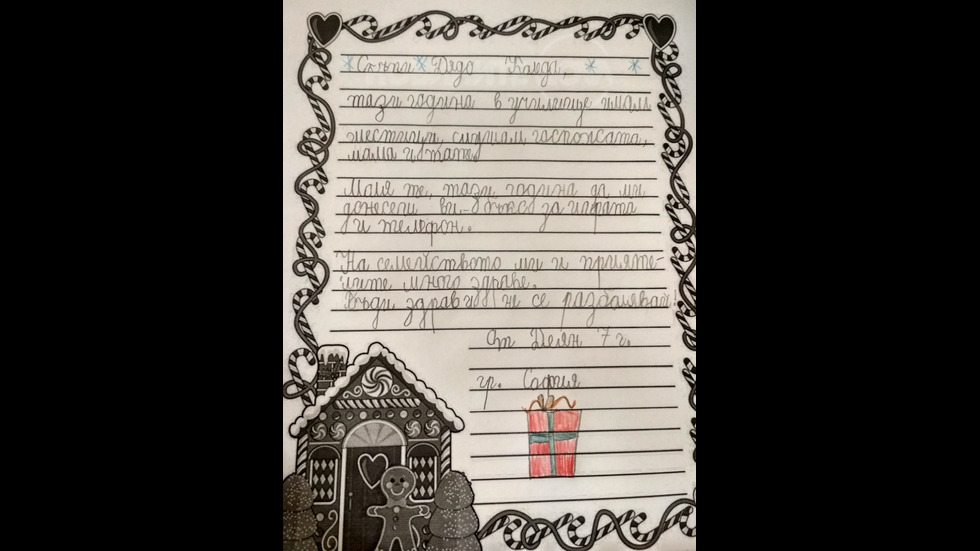 Скъпи Дядо Коледа,
тази година в училище имам
шестици, слушам госпожата,
мама и тате.
Моля те, тази година да ми
донесеш ви- бъкс за играта
и телефон.
На семейството ми и прияте-
лите много здраве.
Бъди здрав и не се разболявай!
От Деян 7 г.
гр. София